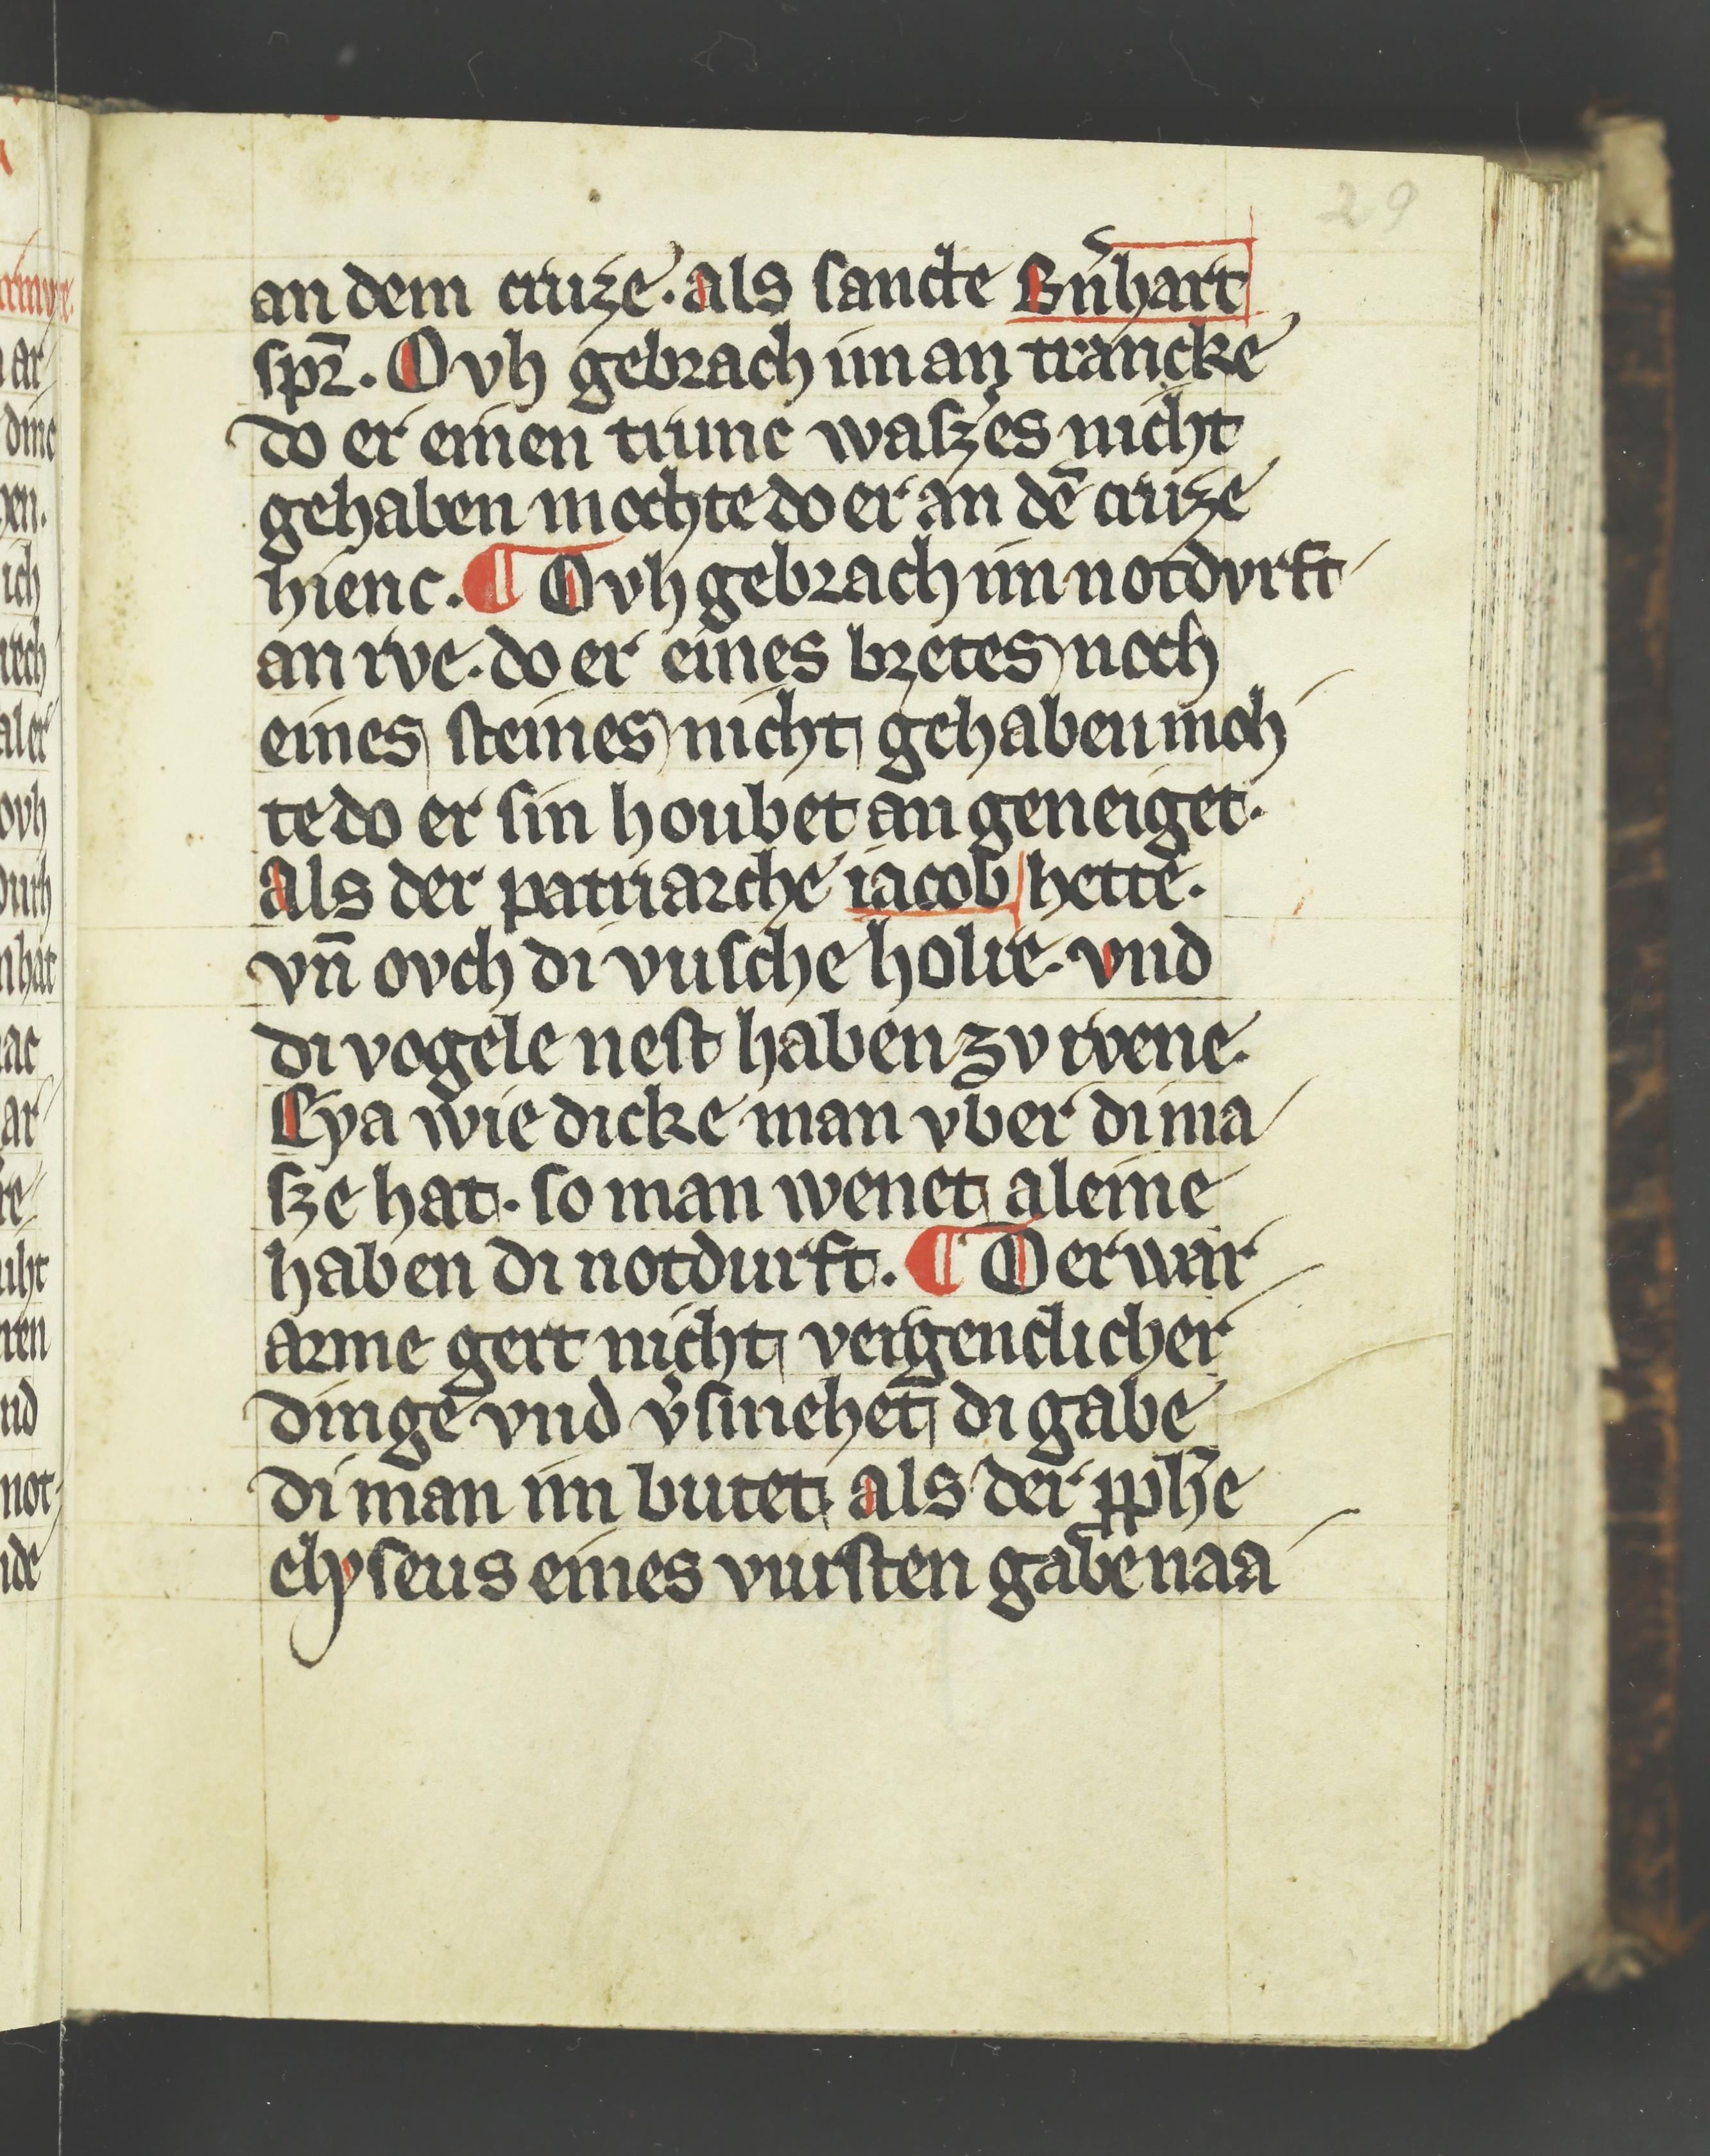 29
an dem cruze. als sancte Bn̄hart
spꝛ̄. Ovh gebrach im an trancke
do er einen trunc waszes nicht
gehaben mochte do er an dē cruze
hienc. ¶ Ovh gebrach im notdvrft
an rve. do er eines bretes noch
eines steines nicht gehaben moh
te do er sin houbet an geneiget.
Als der patriarche iacob hette.
vn̄ ovch di vusche holir. vnd
di vogele nest haben zv rvene.
Eya wie dicke man vber di ma
sze hat. so man wenet aleine
haben di notdurft. ¶ Der war
arme gert nicht vergenclicher
dinge vnd v̓smehet di gabe
di man im butet als der ꝓph̄e
elyseus eines vursten gabe naa